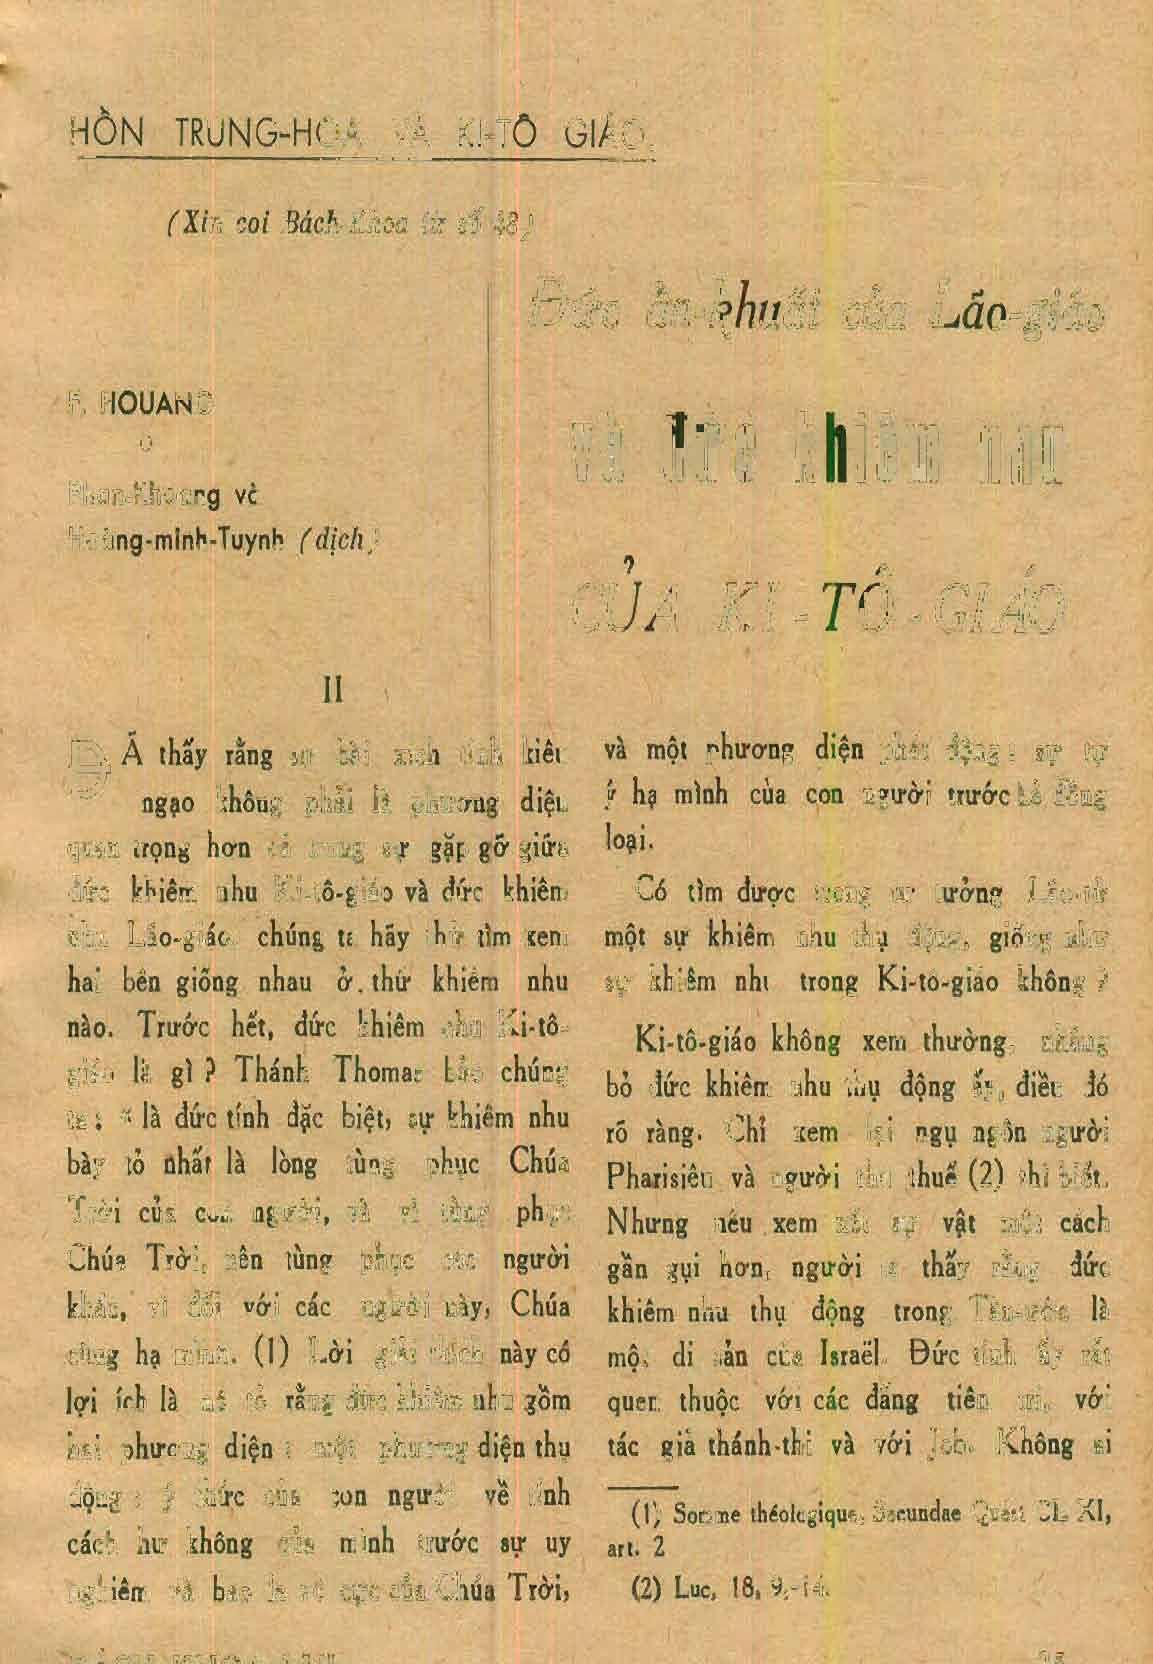 HỒN TRUNG-HOA VÀ KI-TÔ GIÁO.
(Xin coi Bách-Khoa từ số 48)
Đức ẩn-khuất của Lão-giáo
và đức khiêm nhu
CỦA KI-TÔ-GIÁO
F. HOUANG
Phan-Khoang và
Hoàng-minh-Tuynh (dịch)
II
ĐÃ thấy rằng sự bài xích tính kiêu
ngạo không phải là phương diện
quan trọng hơn cả trong sự gặp gỡ giữa
đức khiêm nhu Ki-tô-giáo và đức khiêm
của Lão-giáo, chúng ta hãy thử tìm xem
hai bên giống nhau ở thứ khiêm nhu
nào. Trước hết, đức khiêm nhu Ki-tô-
giáo là gì ? Thánh Thomas bảo chúng
ta : « là đức tính đặc biệt, sự khiêm nhu
bày tỏ nhất là lòng tùng phục Chúa
Trời của con người, và vì tùng phục
Chúa Trời, nên tùng phục các người
khác, vì đối với các người này, Chúa
cũng hạ mình. (1) Lời giải thích này có
lợi ích là nó tỏ rằng đức khiêm nhu gồm
hai phương diện : một phương diện thụ
động : ý thức của con người về tính
cách hư không của mình trước sự uy
nghiêm và bao la vô cực của Chúa Trời,
và một phương diện phát động : sự tự
ý hạ mình của con người trước kẻ đồng
loại.
Có tìm được trong tư tưởng Lão-tử
một sự khiêm nhu thụ động, giống như
sự khiêm nhu trong Ki-tô-giáo không ?
Ki-tô-giáo không xem thường, những
bỏ đức khiêm nhu thụ động ấy, điều đó
rõ ràng. Chỉ xem lại ngụ ngôn người
Pharisiêu và người thu thuế (2) thì biết.
Nhưng nếu xem xét sự vật một cách
gần gụi hơn, người ta thấy rằng đức
khiêm nhu thụ động trong Tân-ước là
một di sản của Israël. Đức tính ấy rất
quen thuộc với các đấng tiên tri, với
tác giả thánh-thi và với Job. Không ai
(1) Somme théologique, Secundae Quest CLXI,
art. 2
(2) Luc, 18, 9-14.